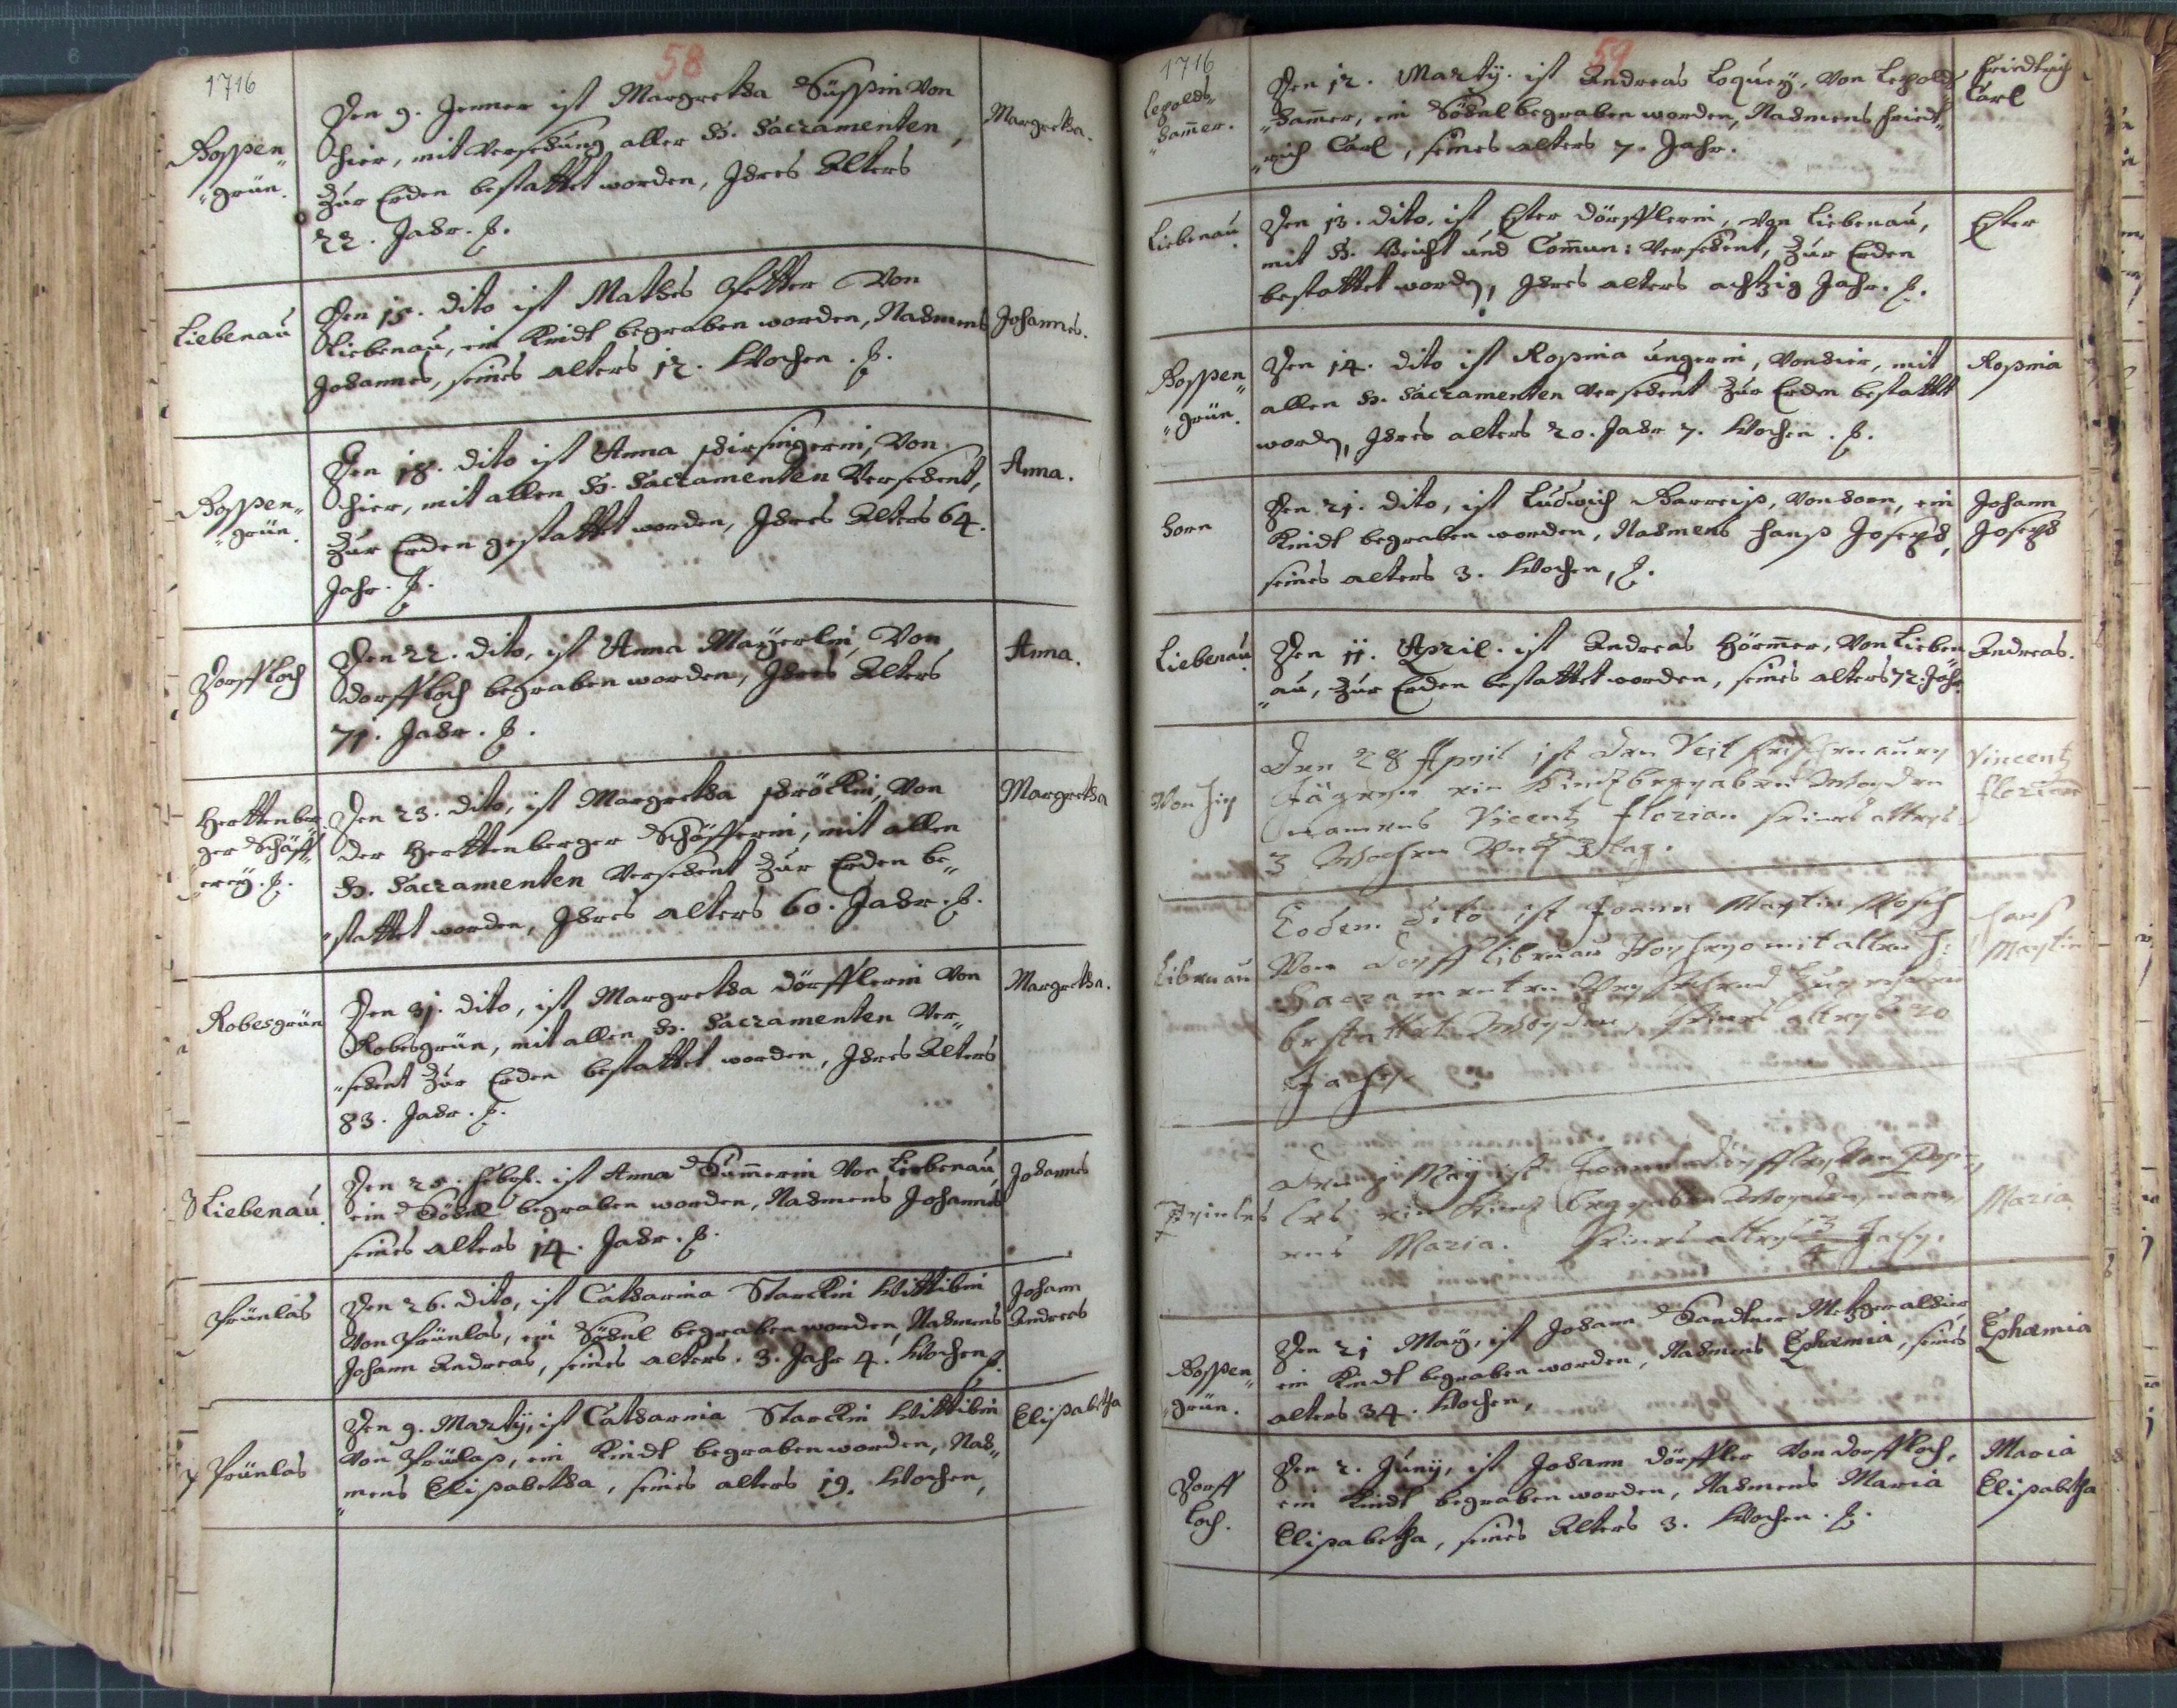 1716
58
Boppen„
„grün.
Den 9. Jenner ist Margretha Süssin Von
hier, mit Versehung aller H. Sacramenten,
Zur Erden bestattet worden, Ihres Alters
22. Jahr.
Margretha.
Liebenau
Den 15. dito ist Mathes Von
Liebenau, ein Kindt begraben worden, Nahmens
Johannes, seines alters 12. Wochen.
Johannes.
Boppen„
„grün.
Den 18. dito ist Anna Von
hier, mit allen H. Sacramenten Versehent,
Zur Erden gestattet worden, Ihres Alters 64.
Jahr.
Anna.
Dorffloch
Den 22. dito, ist Anna Mayerlin, Von
dorffloch begraben worden, Ihres Alters
71. Jahr.
Anna.
Herttenber„
„ger Schäff„
„erey.
Den 23. dito, ist Margretha Von
der Herttenberger Schöfferin, mit allen
H. Sacramenten Versehent Zur Erden be„
„stattet worden, Ihres alters 60. Jahr.
Margretha
Robesgrün
Den 31. dito, ist Margretha dörfflerin Von
Robesgrün, mit allen H. Sacramenten Ver„
„sehent Zur Erden bestattet worden, Ihres Alters
83. Jahr.
Margretha.
Liebenau.
Den 25. ist Anna Von Liebenau,
ein Söhnl begraben worden, Nahmens Johannes
seines alters 14. Jahr.
Johannes
Prünlas
Den 26. dito, ist Catharina Starckin Wittibin
Von Prünlas, ein Söhnl begraben worden, Nahmens
Johann Andreas, seines alters. 3. Jahr 4. Wochen
Johann
Andreas
Prünlas
Den 9. Marty, ist Catharina Starckin Wittibin
Von Prünlas, ein Kindt begraben worden, Nah„
„mens Elisabetha, seines alters 19. Wochen,
Elisabetha
1716
59
Lepolds„
„hammer.
Den 12. Marty. ist Andreas Loquey, Von Lepolds„
„hammer, ein Söhnl begraben worden, Nahmens Fried„
„rich Carl, seines alters 7. Jahr.
Friedrich
Carl
Liebenau
Den 13. dito, ist Ester dörfflerin, Von Liebenau,
mit H. Beicht und Commun: Versehent, Zur Erden
bestattet worden, Ihres alters achtzig Jahr.
Ester
Boppen„
„grün.
Den 14. dito ist Rosina ungerin, Von hier, mit
allen H. Sacramenten Versehent Zur Erden bestattet
worden, Ihres alters 20. Jahr 7. Wochen.
Rosina
Horn
Den 21. dito, ist Ludwich Von Horn, ein
Kindt begraben worden, Nahmens Hanß Joseph,
seines alters 3. Wochen,
Johann
Joseph
Liebenau
Den 11. April. ist Andreas Hörmer, Von Lieben„
„au, Zur Erden bestattet worden, seines alters 72. Jahr
Andreas.
Von hir
Den 28 April ist den Veit
Jägern ein Kind begraben Worden
namens Vicentz Florian seines alters
3 Wochen Und 3 tag.
Vincentz
Florian
Libenau
Eodem dito ist Joann Martin
Von dorff Libenau Vorhero mit allen H:
Sacramenten Versehend Zur erden
bestattet Worden, seines alters 70
Jahr
Hanß
Martin
ist Joann dörffler Von Prün
les ein Kind begraben Worden, nam
ens Maria. seines alters 3/4 Jahr.
Maria
Boppen„
„grün.
Den 21 May, ist Johann Sandtner Metzger alhier
ein Kindt begraben worden, Nahmens Ephæmia, seines
alters 34. Wochen,
Ephæmia
Dorff
loch.
Den 2. Juny, ist Johann dörffler Von dorffloch,
ein Kindt begraben worden, Nahmens Maria
Elisabetha, seines Alters 3. Wochen.
Maria
Elisabetha